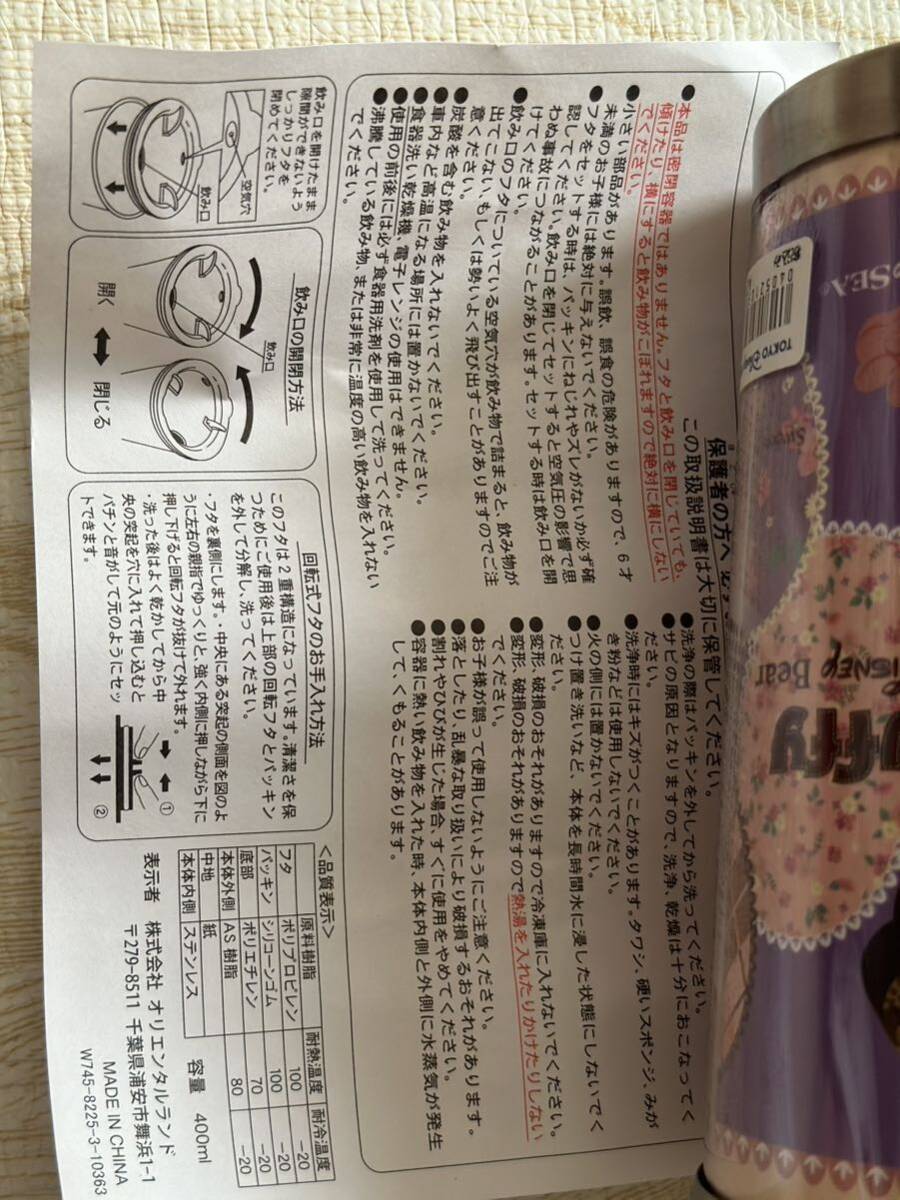 保護者の方へ
この取扱説明書は大切に保管してください。
●本品は密閉容器ではありません。フタと飲み口を閉じていても、
傾けたり、横にすると飲み物がこぼれますので絶対に横にしない
でください。
●小さい部品があります。誤飲、誤食の危険がありますので、6才
未満のお子様には絶対に与えないでください。
●フタをセットする時は、パッキンにねじれやズレがないか必ず確
認してください。飲み口を閉じてセットすると空気圧の影響で思
わぬ事故につながることがあります。セットする時は飲み口を開
けてください。
●飲み口のフタについている空気穴が飲み物で詰まると、飲み物が
出てこない、もしくは勢いよく飛び出すことがありますのでご注
意ください。
●炭酸を含む飲み物を入れないでください。
●車内など高温になる場所には置かないでください。
●食器洗い乾燥機、電子レンジの使用はできません。
●使用の前後には必ず食器用洗剤を使用して洗ってください。
●沸騰している飲み物、または非常に温度の高い飲み物を入れない
でください。
●洗浄の際はパッキンを外してから洗ってください。
●サビの原因となりますので、洗浄、乾燥は十分におこなってく
ださい。
●洗浄時にはキズがつくことがあります。タワシ、硬いスポンジ、みが
き粉などは使用しないでください。
●火の側には置かないでください。
●つけ置き洗いなど、本体を長時間水に浸した状態にしないでく
ださい。
●変形、破損のおそれがありますので冷凍庫に入れないでください。
●変形、破損のおそれがありますので熱湯を入れたりかけたりしない
でください。
●お子様が誤って使用しないようにご注意ください。
●落としたり、乱暴な取り扱いにより破損するおそれがあります。
●割れやひびが生じた場合、すぐに使用をやめてください。
●容器に熱い飲み物を入れた時、本体内側と外側に水蒸気が発生
して、くもることがあります。
飲み口を開けたまま
隙間ができないよう
しっかりフタを
閉めてください。
空気穴
飲み口
飲み口の開閉方法
飲み口
開く
閉じる
回転式フタのお手入れ方法
このフタは2重構造になっています。清潔さを保
つためにご使用後は上部の回転フタとパッキン
を外して分解し、洗ってください。
・フタを裏側にします。・中央にある突起の側面を図のよ
うに左右の親指でゆっくりと、強く内側に押しながら下に
押し下げると回転フタが抜けて外れます。
・洗った後はよく乾かしてから中
央の突起を穴に入れて押し込むと
パチンと音がして元のようにセッ
トできます。
①
②
<品質表示>
原料樹脂 耐熱温度 耐冷温度
フタ ポリプロピレン 100 -20
パッキン シリコーンゴム 100 -20
底部 ポリエチレン 70 -20
本体外側 AS樹脂 80 -20
中地 紙
本体内側 ステンレス
容量 400ml
表示者 株式会社 オリエンタルランド
〒279-8511 千葉県浦安市舞浜1-1
MADE IN CHINA
W745-8225-3-10363
SEA
TOKYO
DISNEY Bear